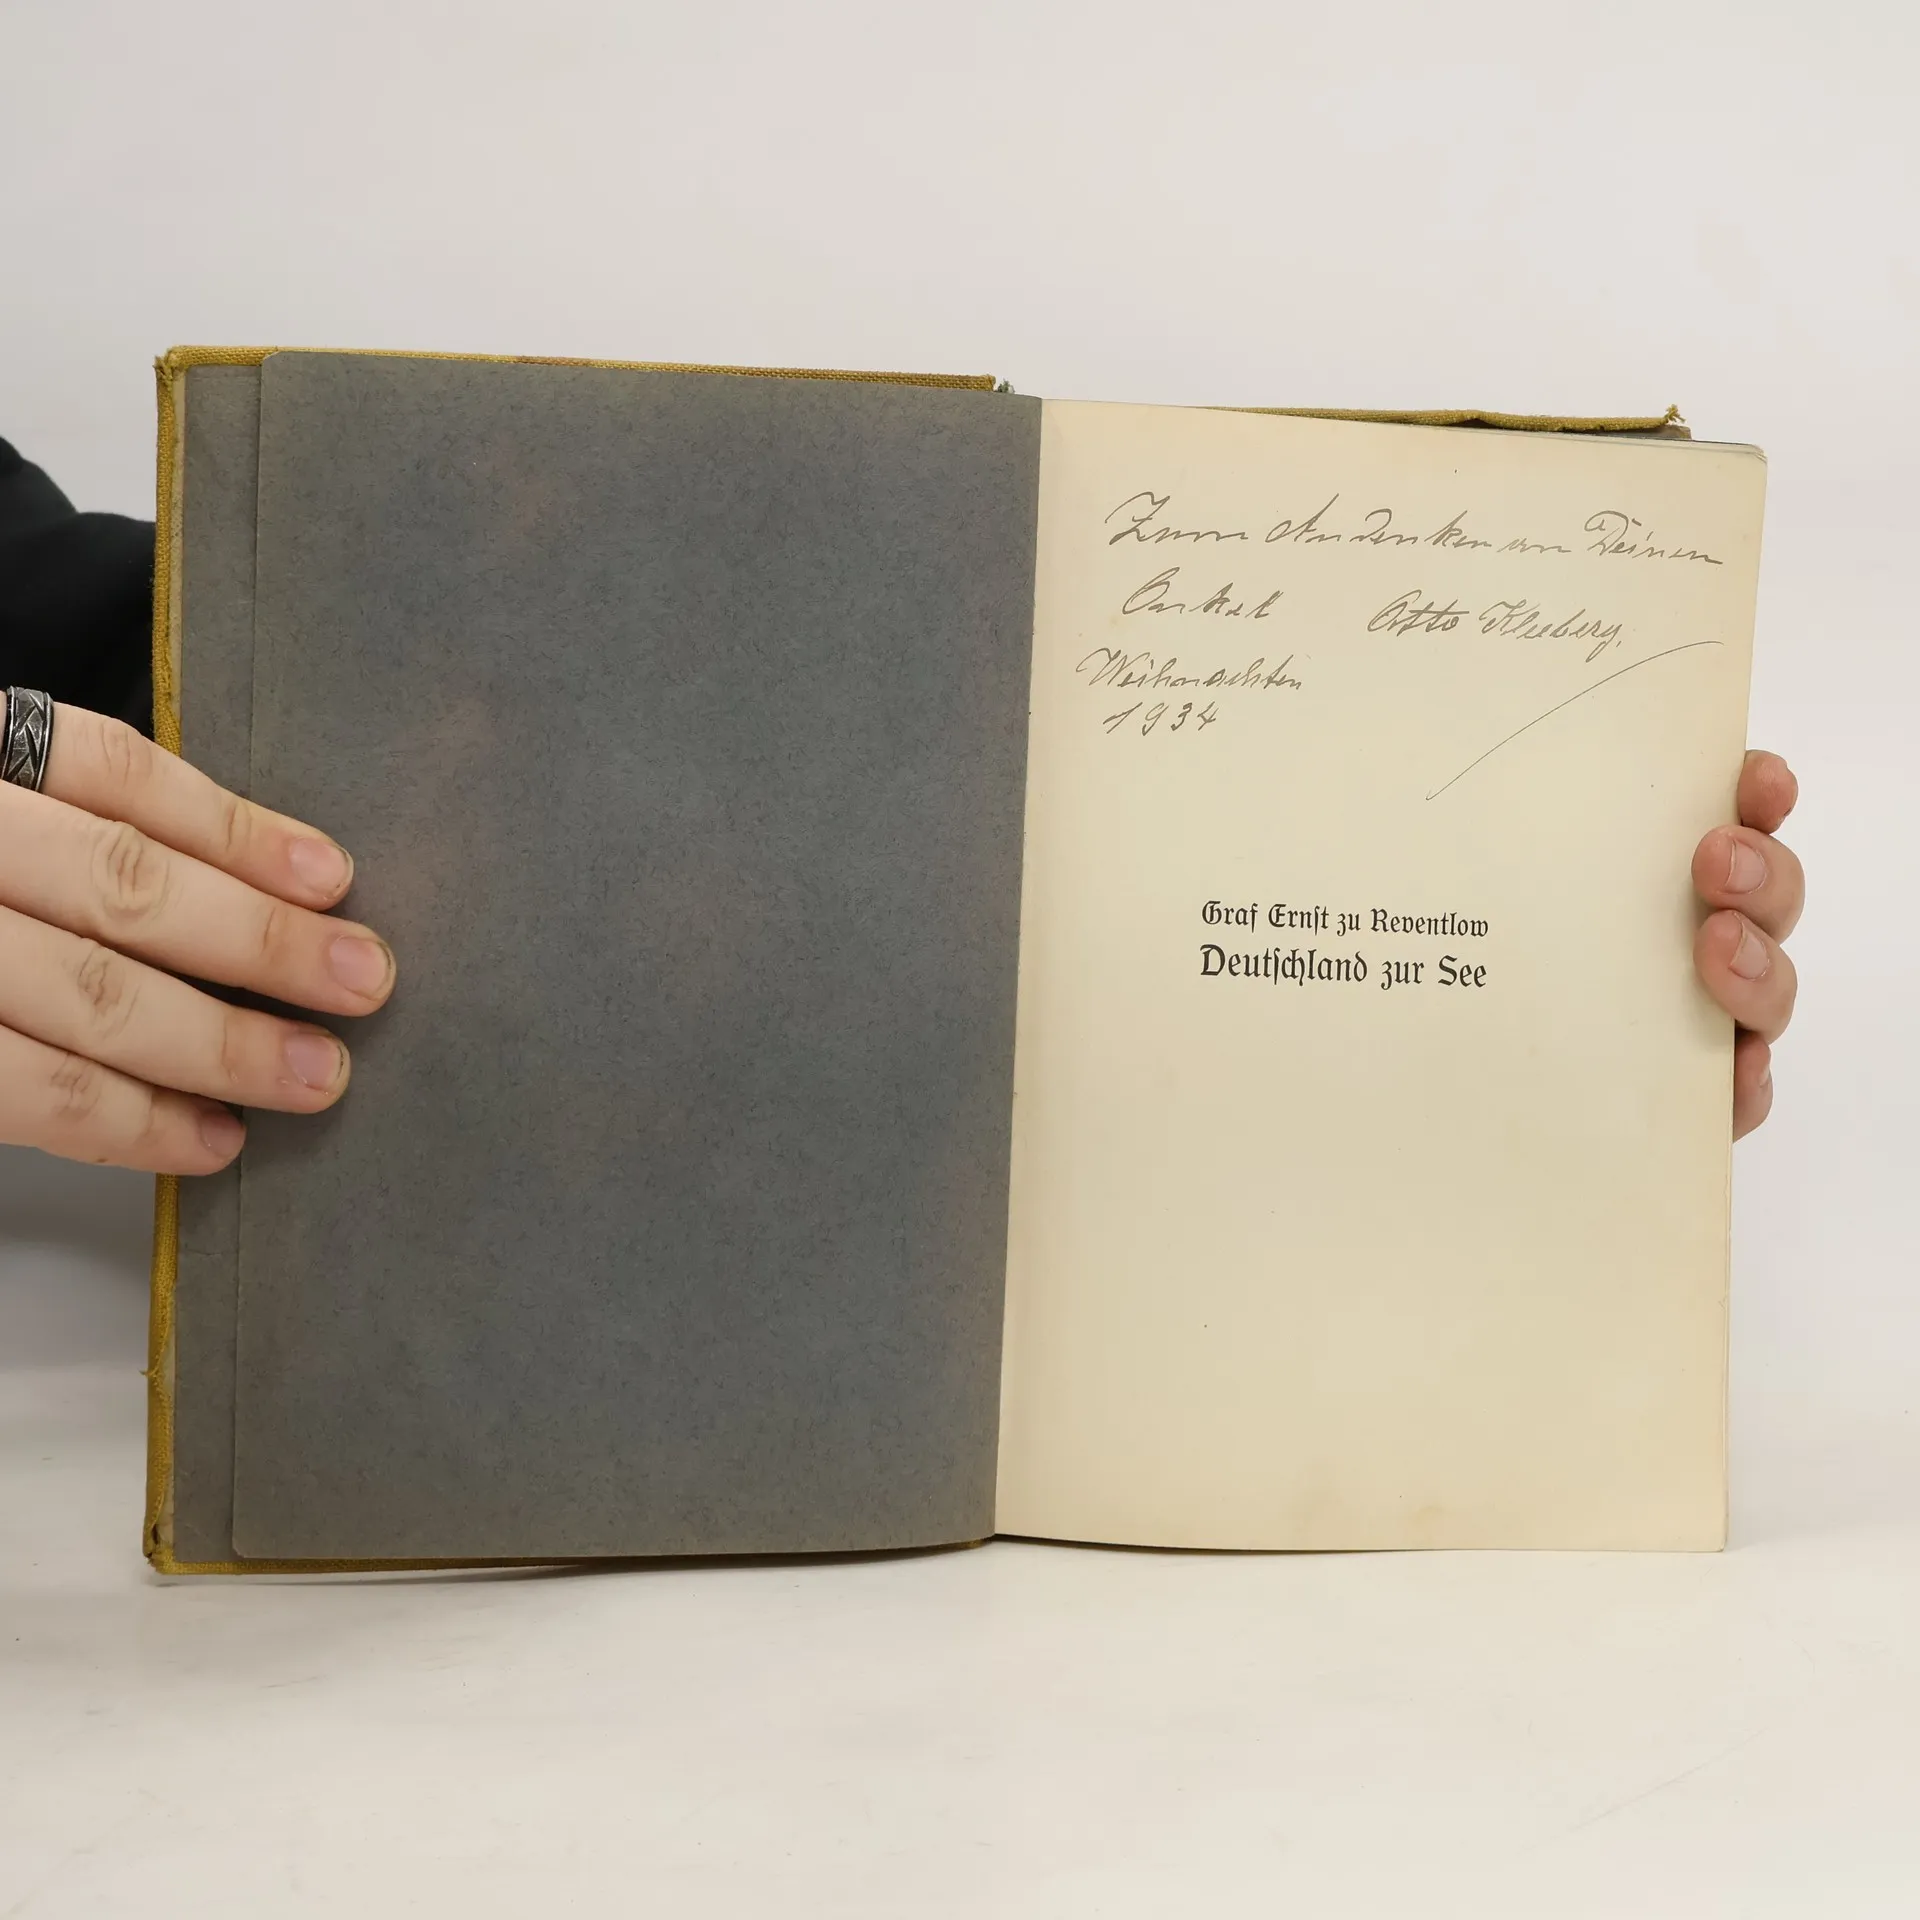 Zum Andenken von Deinem
Onkel Otto Kleeberg.
Weihnachten
1934
Graf Ernſt zu Reventlow
Deutſchland zur See